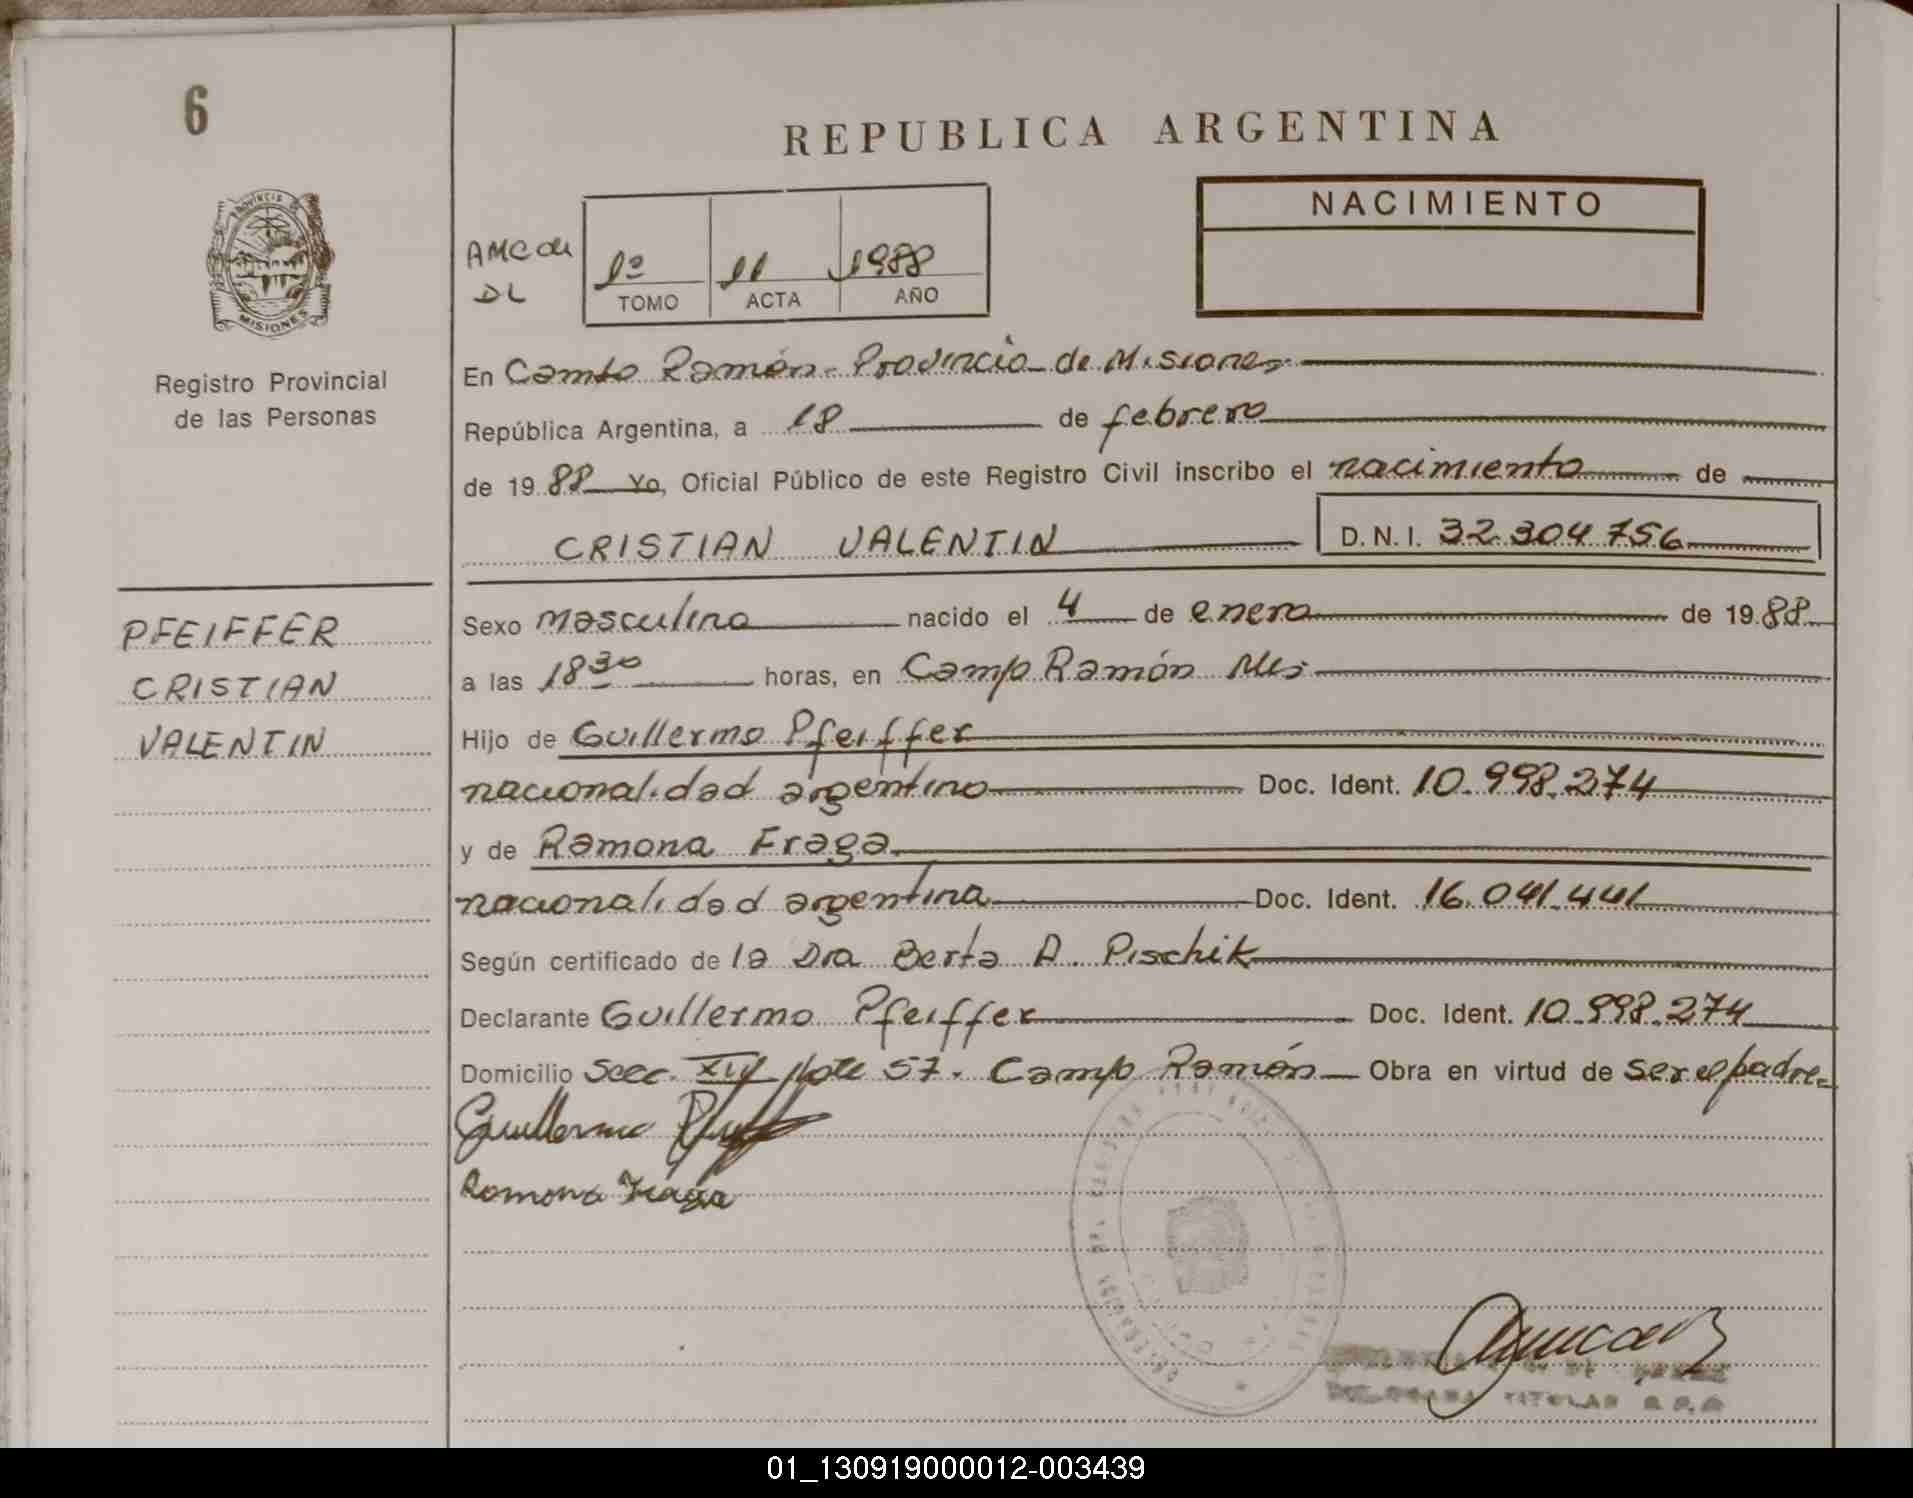 6
REPUBLICA ARGENTINA
NACIMIENTO
PROVINCIA DE
MISIONES
Registro Provincial
de las Personas
AMC de
DL
1º 11 1988
TOMO ACTA AÑO
En Campo Ramón - Provincia de Misiones
República Argentina, a 18 de febrero
de 1988 Yo, Oficial Público de este Registro Civil inscribo el nacimiento de
CRISTIAN VALENTIN D.N.I. 32.304.756
PFEIFFER
CRISTIAN
VALENTIN
Sexo masculino nacido el 4 de enero de 1988
a las 18 30 horas, en Campo Ramón Mis
Hijo de Guillermo Pfeiffer
nacionalidad argentino Doc. Ident. 10.998.274
y de Ramona Fraga
nacionalidad argentina Doc. Ident. 16.041.441
Según certificado de la Dra Berta A. Pischik
Declarante Guillermo Pfeiffer Doc. Ident. 10.998.274
Domicilio Secc. XIV lote 57. Campo Ramón Obra en virtud de ser el padre
Guillermo
Ramona Fraga
TITULAR
01_130919000012-003439